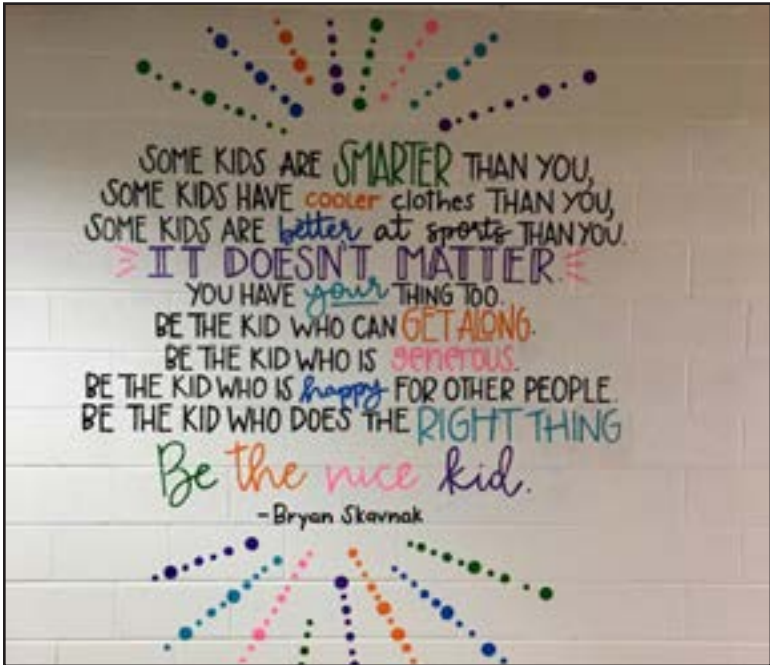 SOME KIDS ARE SMARTER THAN YOU,
SOME KIDS HAVE cooler clothes THAN YOU,
SOME KIDS ARE better at sports THAN YOU.
IT DOESN'T MATTER.
YOU HAVE your THING TOO.
BE THE KID WHO CAN GET ALONG.
BE THE KID WHO IS generous.
BE THE KID WHO IS happy FOR OTHER PEOPLE.
BE THE KID WHO DOES THE RIGHT THING
Be the nice kid.
-Bryan Skavnak